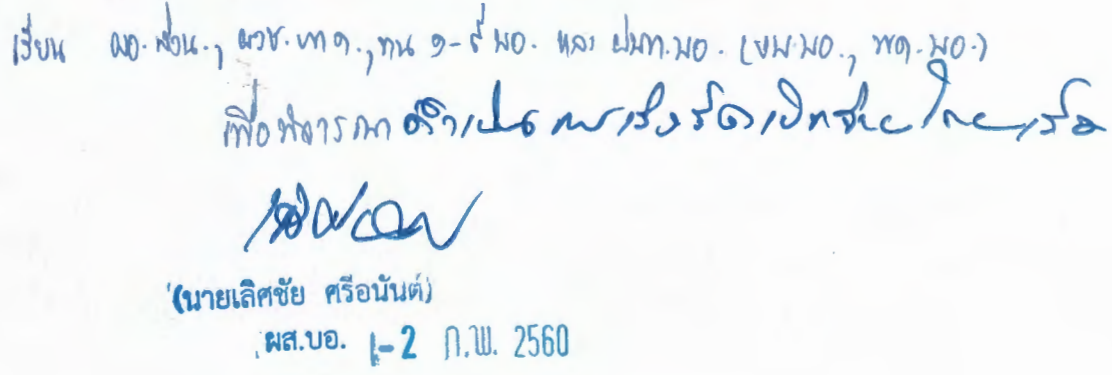 เรียน ผอ.ส่วน., ผวช.ทกด., ทน ๑-๕ บอ. และ ฝบท.บอ. (ขผ.บอ., พด.บอ.)
เพื่อพิจารณา ดำเนินการเร่งรัดเบิกจ่ายโดยเร็ว
(นายเลิศชัย ศรีอนันต์)
ผส.บอ. 1-2 ก.พ. 2560